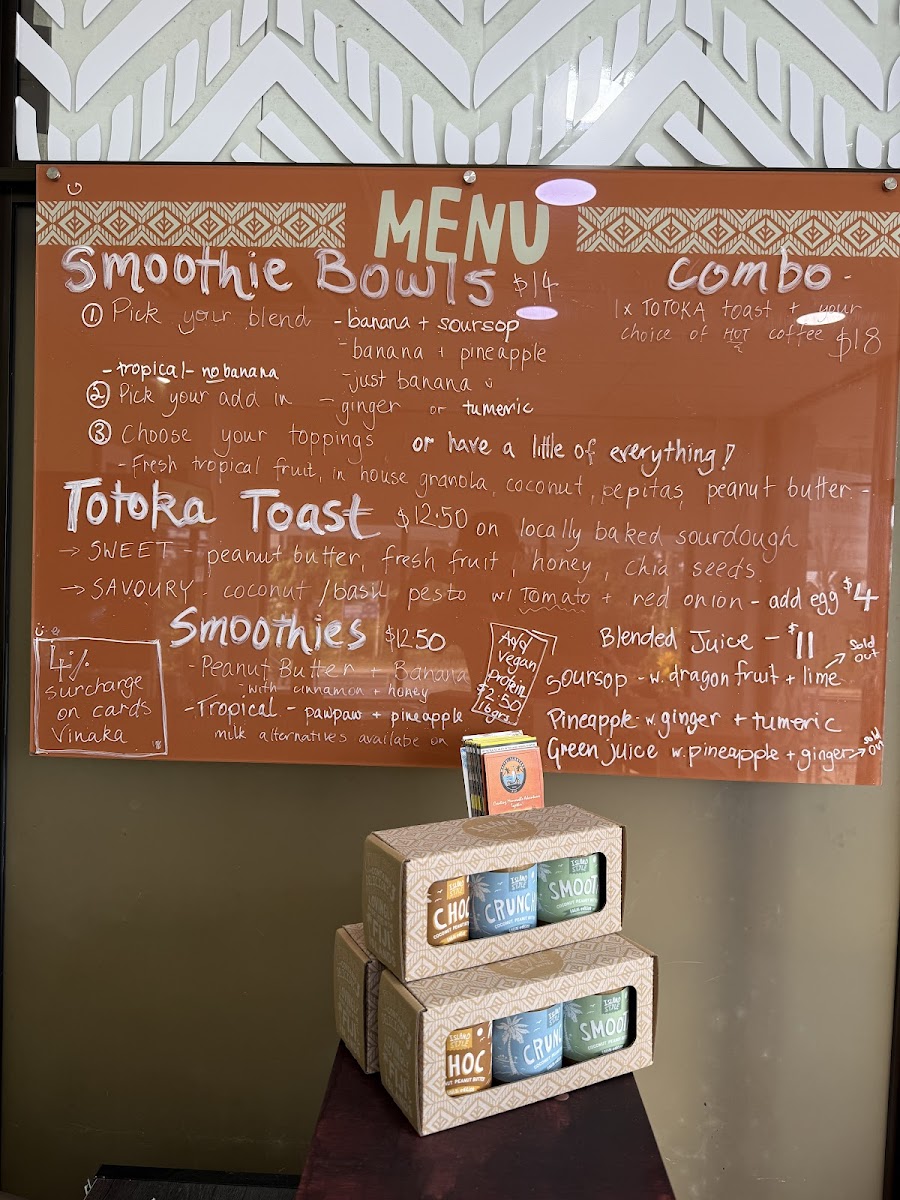 MENU
Smoothie Bowls $14
① Pick your blend - banana + soursop
- banana + pineapple
- tropical - no banana
- just banana
② Pick your add in - ginger or tumeric
③ Choose your toppings or have a little of everything!
- Fresh tropical fruit, in house granola, coconut, pepitas, peanut butter -
Combo -
1x TOTOKA toast + your
choice of HOT coffee $18
Totoka Toast $12.50 on locally baked sourdough
→ SWEET - peanut butter, fresh fruit, honey, chia seeds.
→ SAVOURY - coconut / basil pesto w/ Tomato + red onion - add egg $4
Smoothies $12.50
- Peanut Butter + Banana
- with cinnamon + honey
- Tropical - pawpaw + pineapple
milk alternatives availabe on
Add
vegan
protein
$2.50
16grs
Blended Juice - $11
soursop - w. dragon fruit + lime → Sold out
Pineapple - w. ginger + tumeric
Green juice w. pineapple + ginger → sold out
4%
surcharge
on cards
Vinaka
CHOC
CRUNC
SMOOT
ISLAND STYLE
COCONUT PEANUT
HOC
CRUN
SMOOT
ISLAND STYLE
NUT PEANUT BUTTER
COCONUT PEANUT